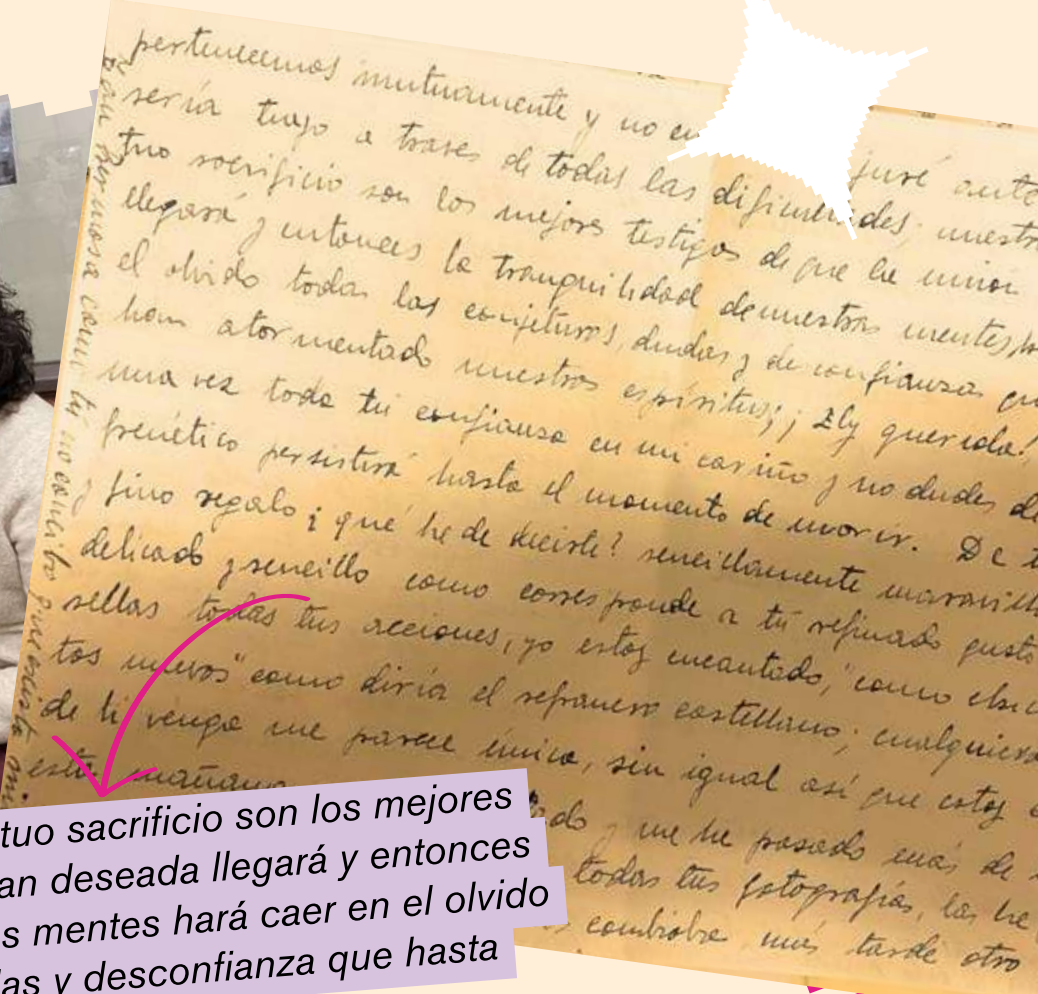 pertenecemos mutuamente y no en juré ante
sería tuyo a traves de todas las dificultades; nuestr
tuo sacrificio son los mejores testigos de que la unión
llegará y entonces la tranquilidad de nuestras mentes
el olvido todas las conjeturas, dudas y desconfianza
han atormentado nuestros espíritus; ¡Ely querida!
una vez toda tu confianza en mi cariño y no dudes de
frenético persistirá hasta el momento de morir. De t
y fino regalo ¡qué he de decirte? sencillamente maravill
delicado y sencillo como corresponde a tú refinado gusto
sellas todas tus acciones, yo estoy encantado, "como
tos nuevos" como diría el refranero castellano; cualquiera
de ti venga me parece único, sin igual así que estoy
esta mañana
ado y me he pasado más de
todas tus fotografías, las he
más tarde otro
tan hermosa como tú
tuo sacrificio son los mejores
an deseada llegará y entonces
s mentes hará caer en el olvido
as y desconfianza que hasta